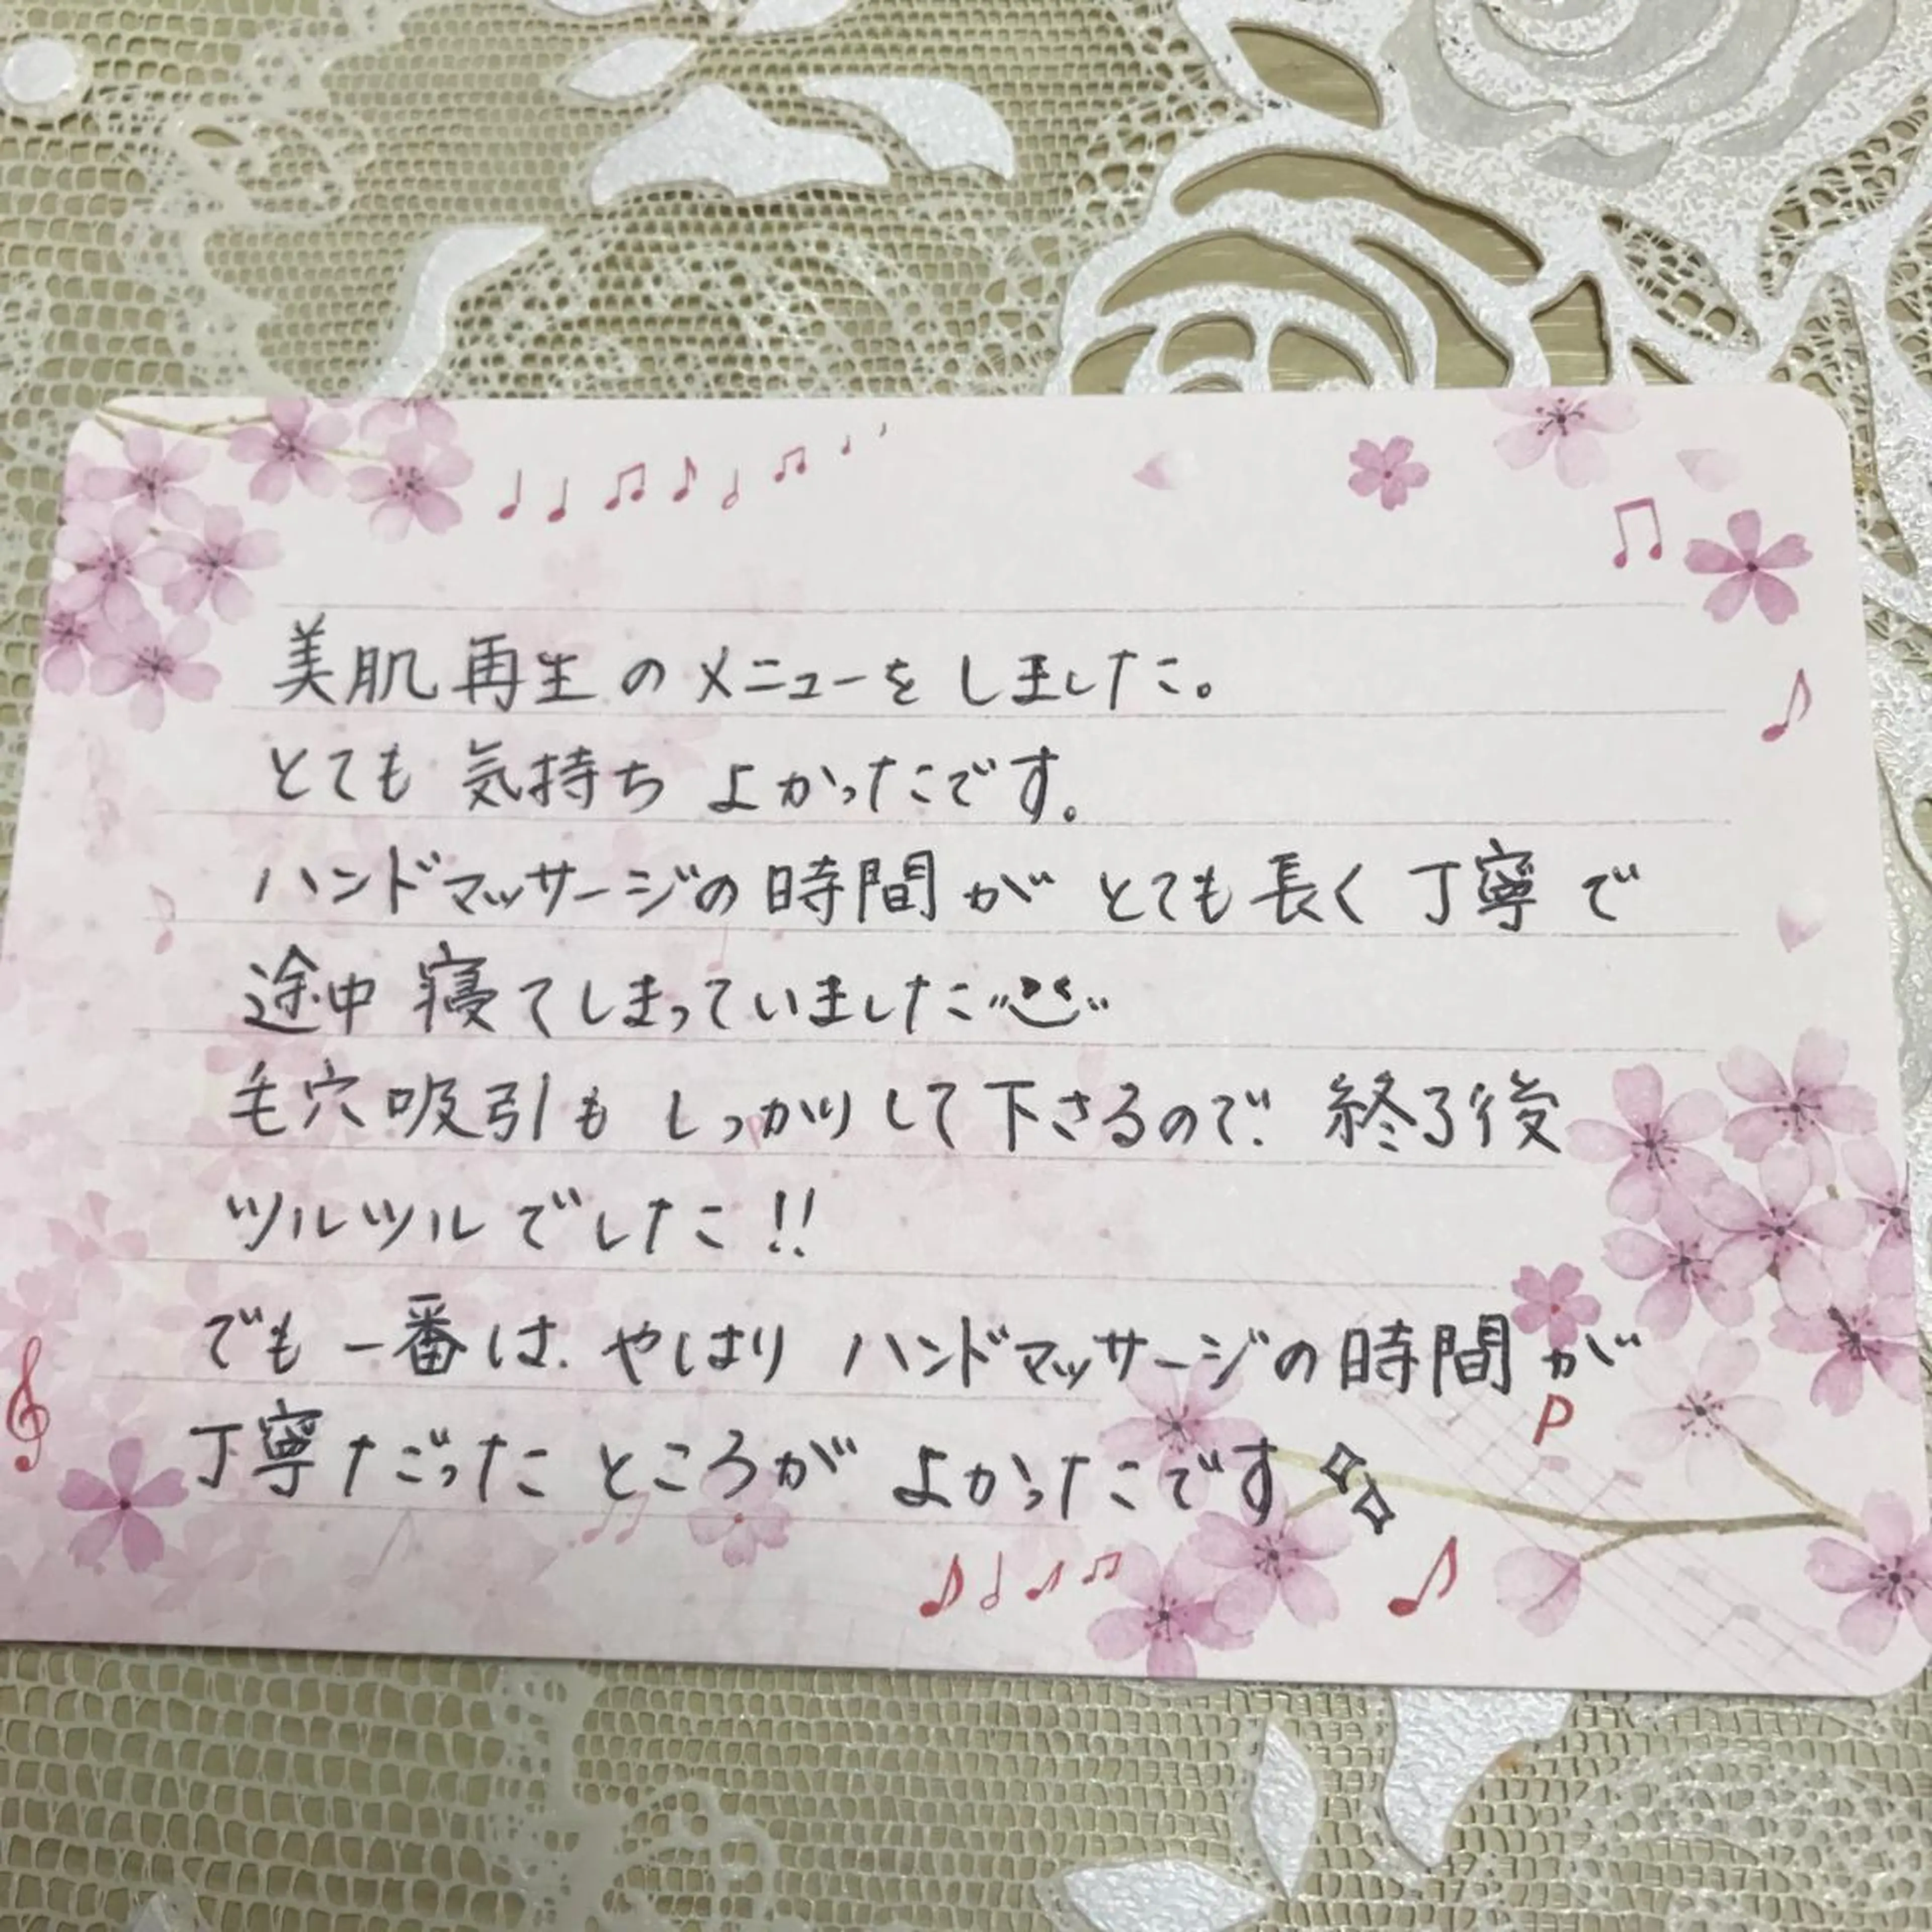 美肌再生のメニューをしました。
とても気持ちよかったです。
ハンドマッサージの時間がとても長く丁寧で
途中寝てしまっていました
毛穴吸引もしっかりして下さるので、終了後
ツルツルでした!!
でも一番は、やはりハンドマッサージの時間が
丁寧だったところがよかったです
P